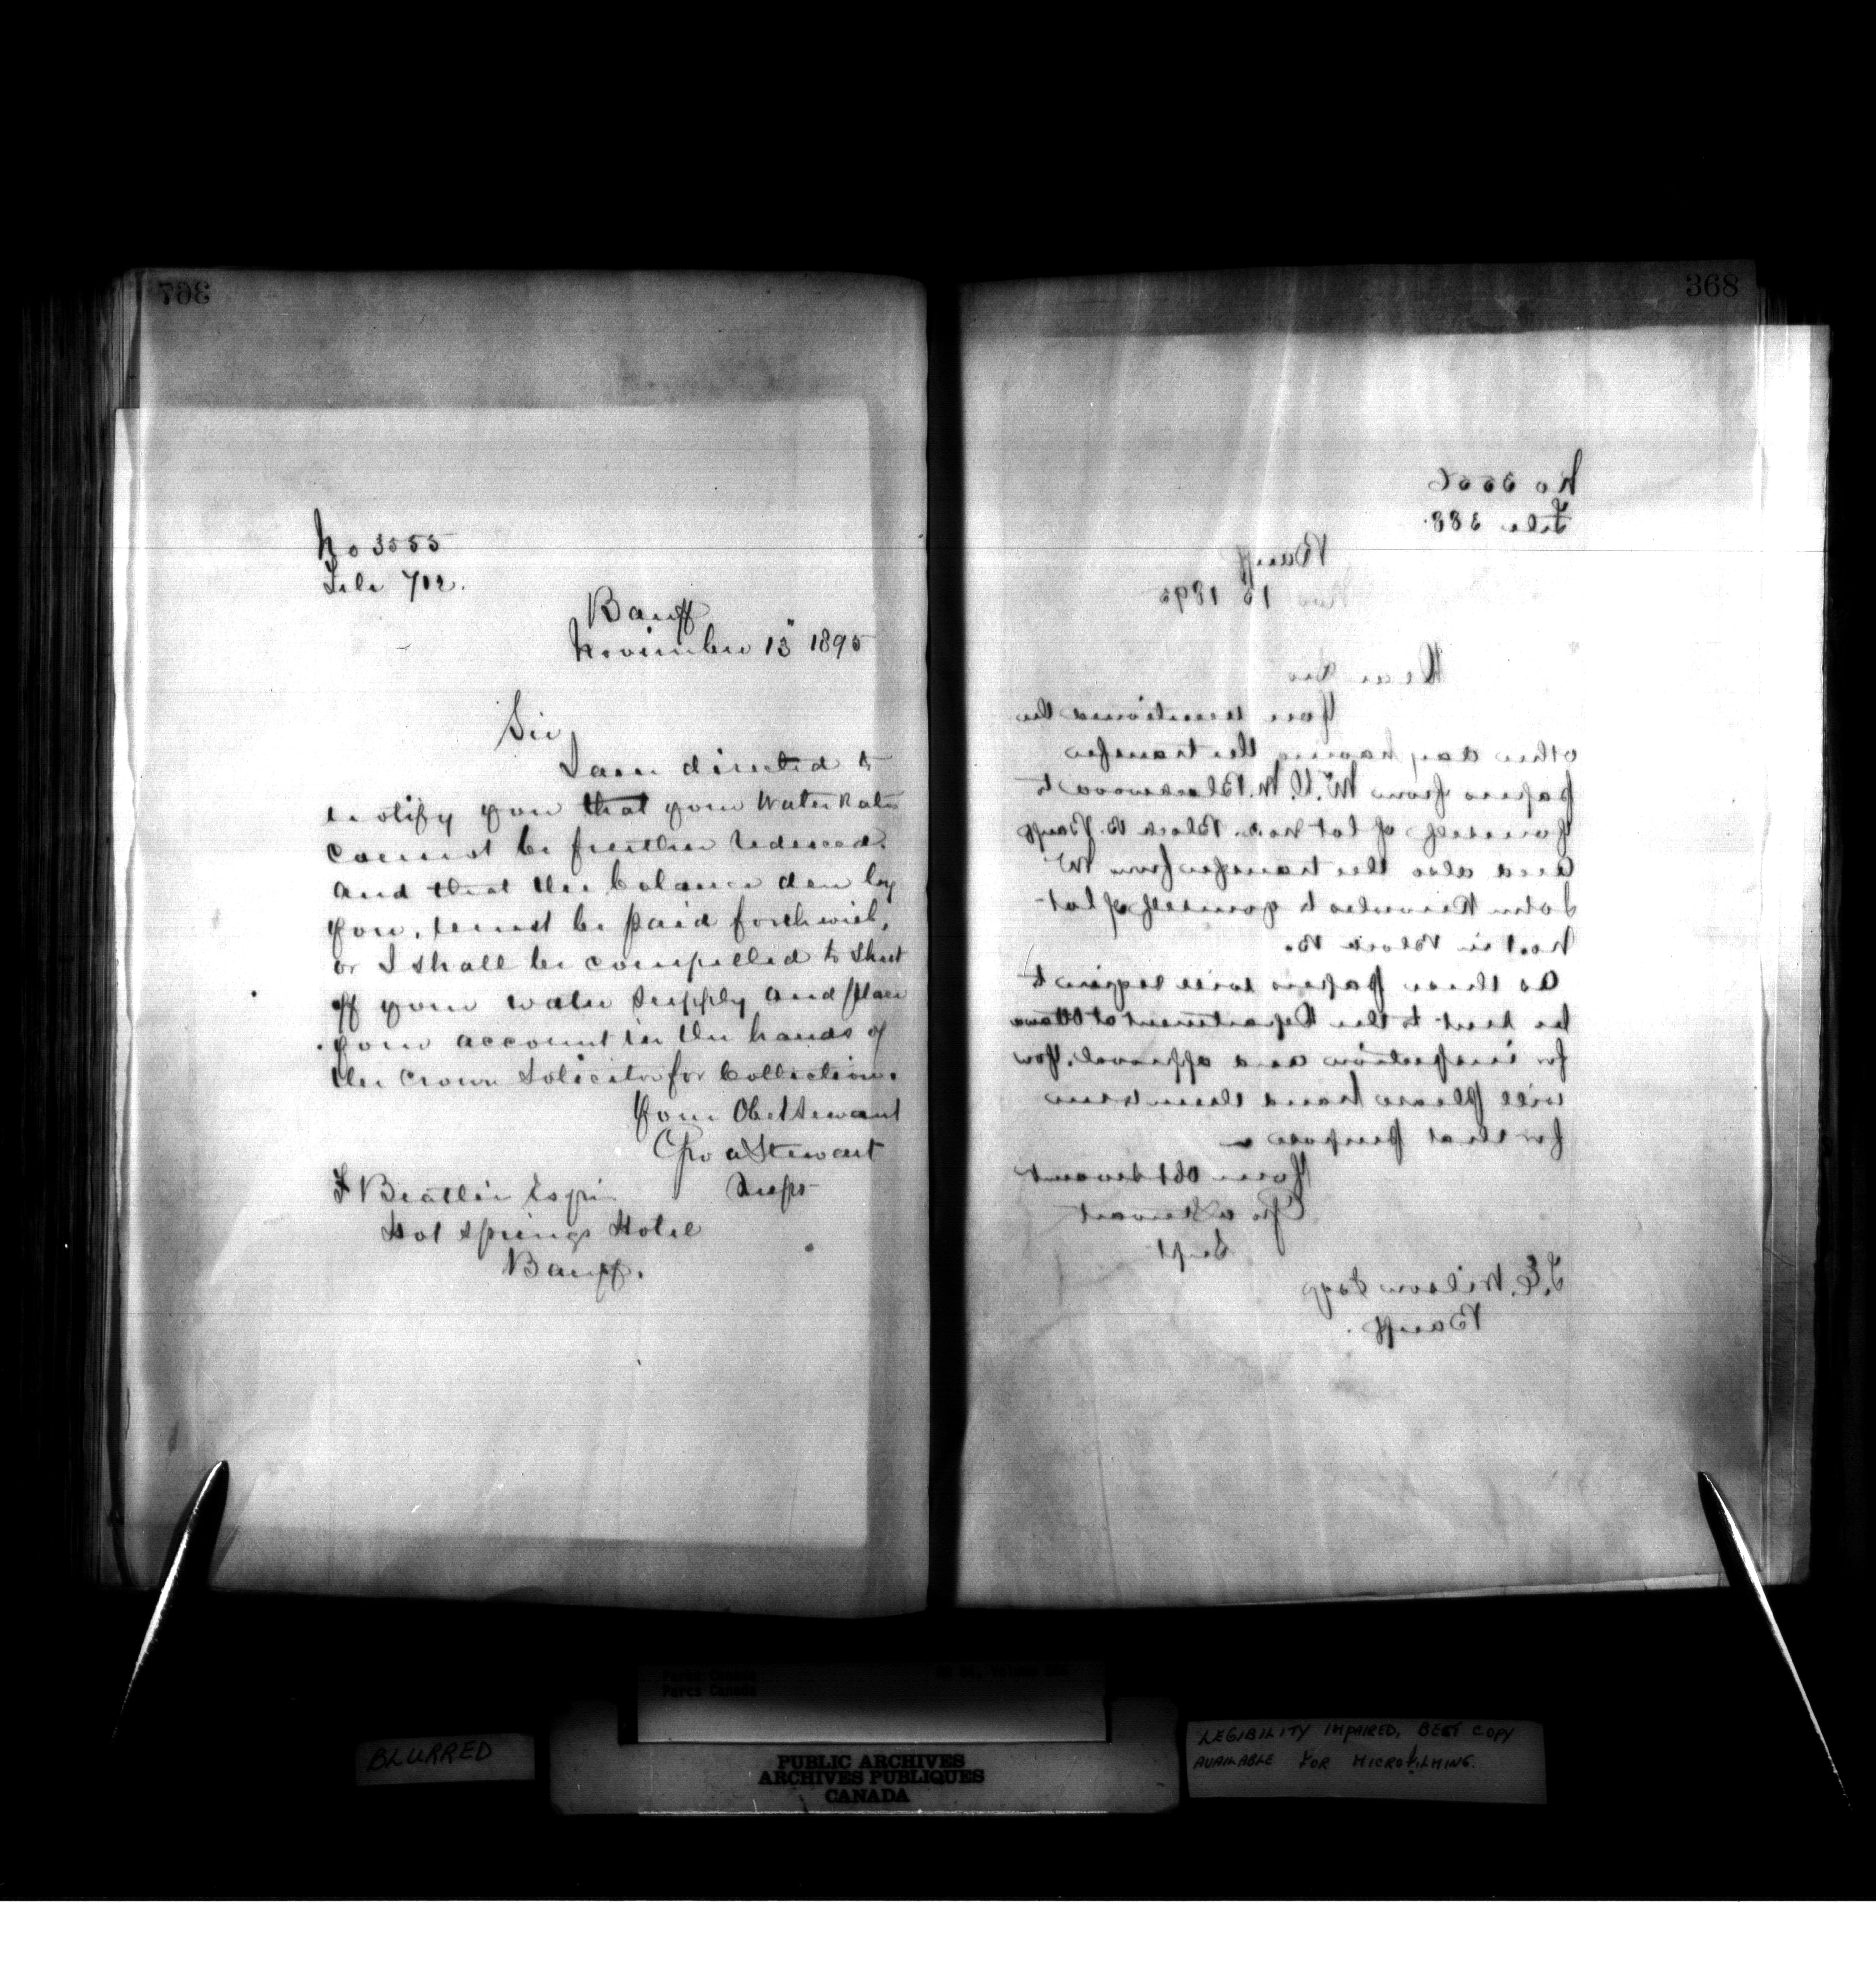 367
No 3555
File 712.
Banff
November 13" 1895
Sir,
I am directed to
notify you that your Water Rates
cannot be further reduced.
and that the balance due by
you, must be paid forthwith,
or I shall be compelled to shut
off your water supply and place
your account in the hands of
the Crown Solicitor for Collection.
Your Obt Servant
Geo A Stewart
Supt
F Beattie Esqr
Hot Springs Hotel
Banff.
368
No 3556
File 388.
Banff
Nov 13 1895
Dear Sir
You mentioned the
other day having the transfer
papers from Mr. D. M. Blackwood to
yourself of lot No 2. Block B. Banff
and also the transfer from Mr
John Knowles to yourself of lot
No. 1 in Block B.
As these papers will require to
be sent to the Department at Ottawa
for inspection and approval. You
will please hand them to me
for that purpose
Your Obt Servant
Geo A Stewart
Supt
T. E. Wilson Esqr
Banff.
Parks Canada
Parcs Canada
BLURRED
PUBLIC ARCHIVES
ARCHIVES PUBLIQUES
CANADA
LEGIBILITY IMPAIRED, BEST COPY
AVAILABLE FOR MICROFILMING.